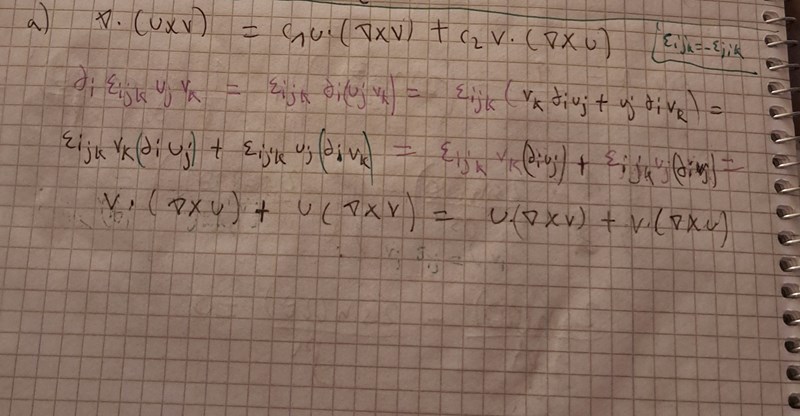 a) ∇·(u×v) = c₁u·(∇×v) + c₂v·(∇×u) [εijk=-εjik
∂i εijk uj vk = εijk ∂i(uj vk) = εijk (vk ∂i uj + uj ∂i vk) =
εijk vk(∂i uj) + εijk uj(∂i vk) = εijk vk(∂i uj) + εijk uj(∂i =
v·(∇×u) + u(∇×v) = u·(∇×v) + v·(∇×u)